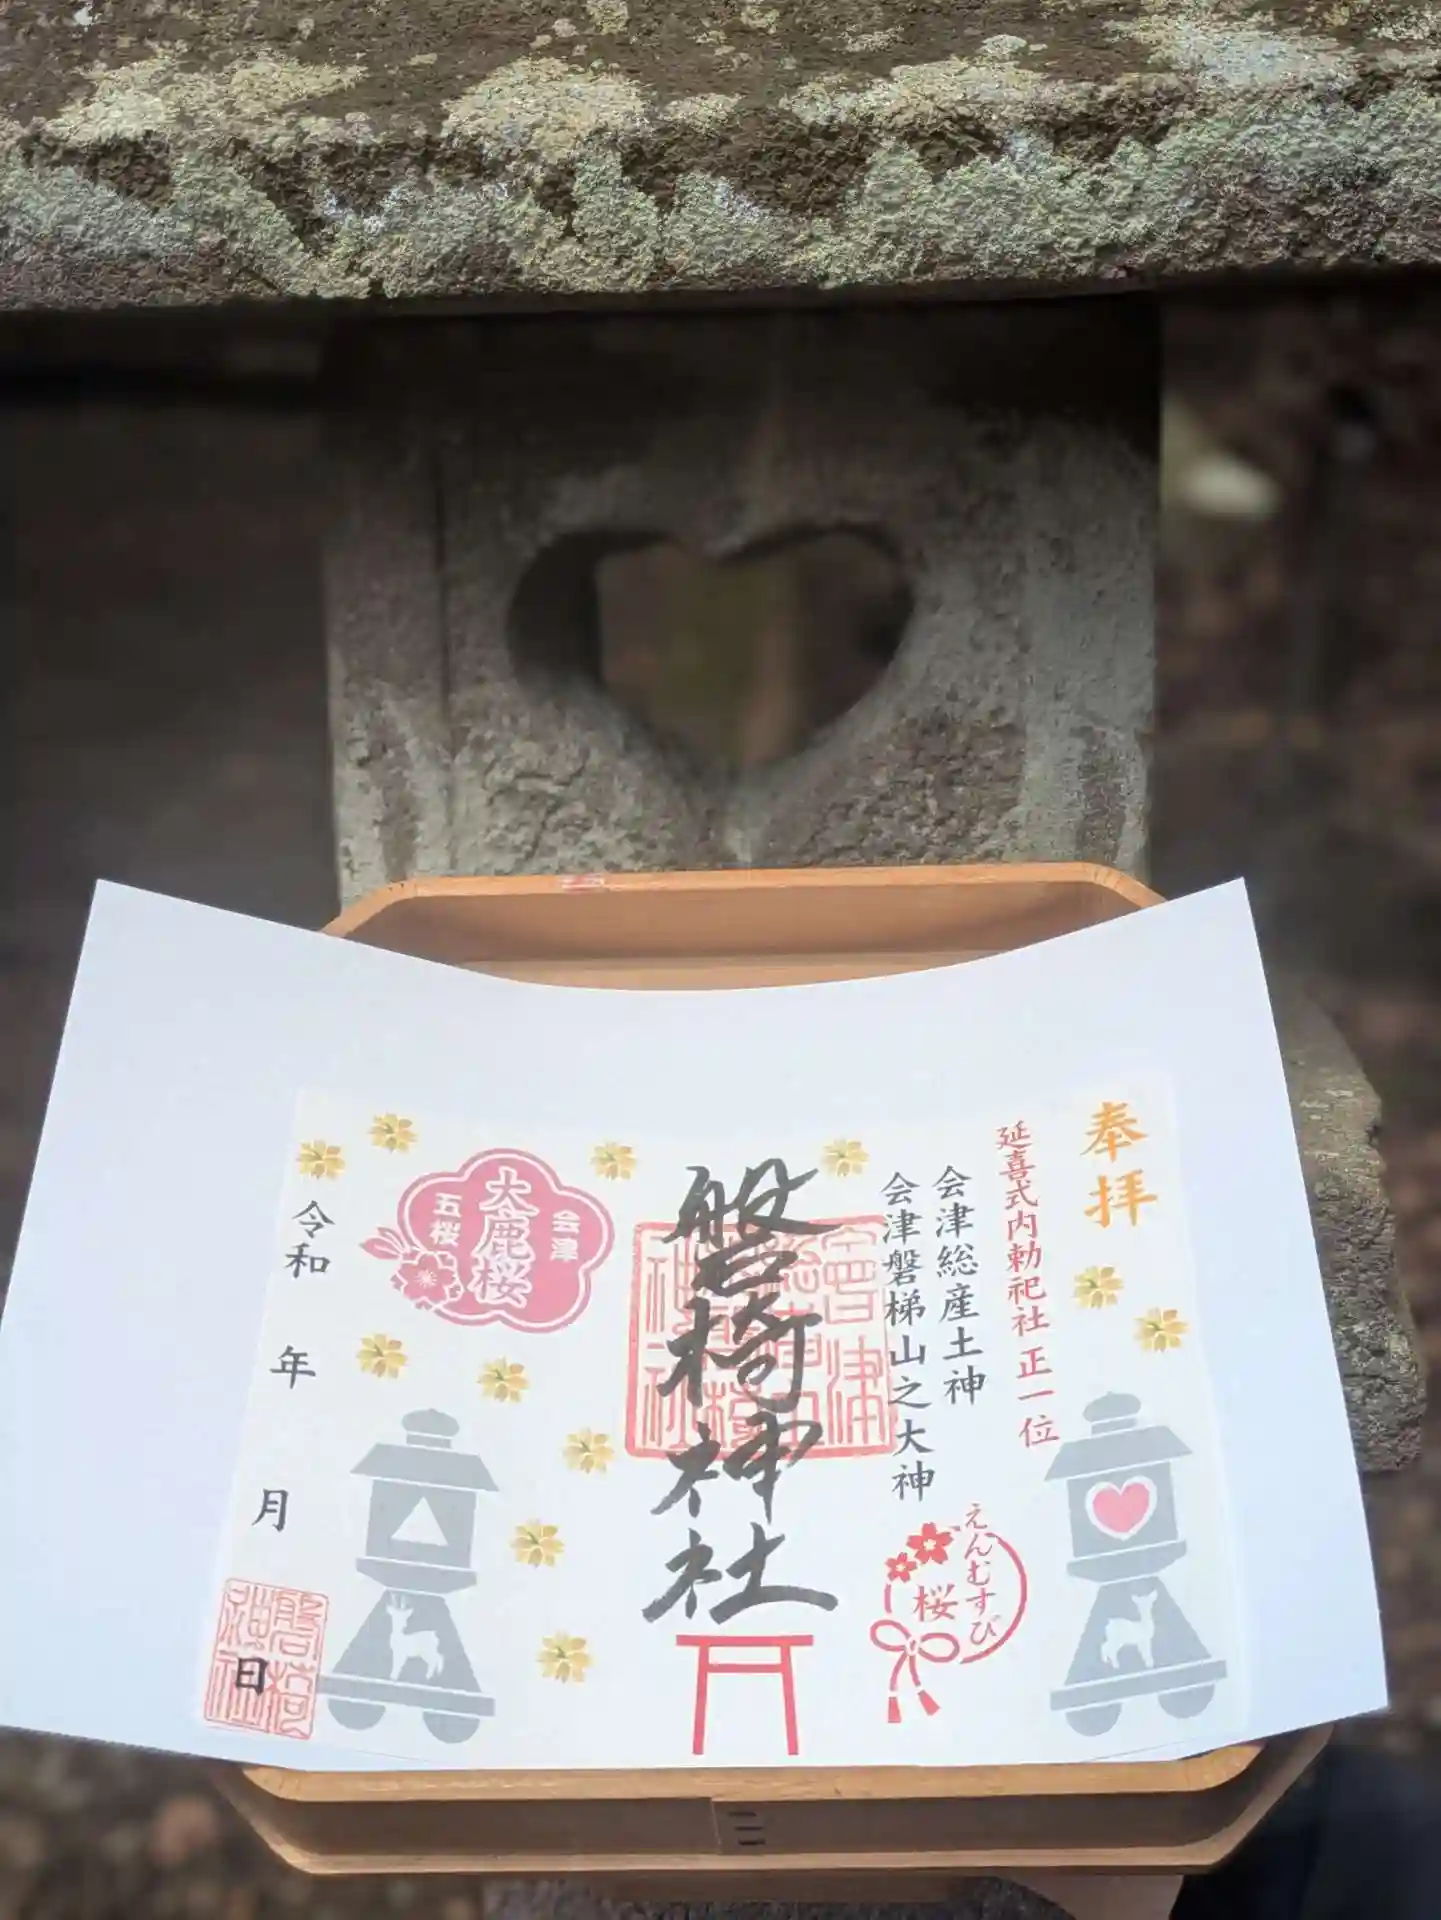 奉拝
延喜式内勅祀社 正一位
会津総産土神
会津磐梯山之大神
えんむすび
桜
磐椅神社
会津
大鹿桜
五桜
令和 年 月 日
磐椅
神社